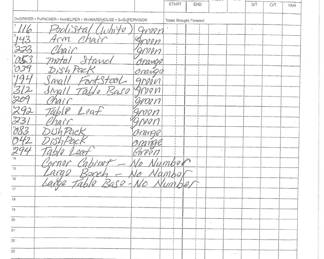 START END S/T O/T VAR
D=DRIVER • P=PACKER • H=HELPER • W=WAREHOUSE • S=SUPERVISOR Totals Brought Forward
116 Pedistal (White) green
143 Arm Chair green
223 Chair green
053 Metal Stand orange
039 DishPack orange
194 Small FootStool green
312 Small Table Base green
209 Chair green
292 Table Leaf green
231 Chair green
083 DishPack orange
042 DishPack orange
294 Table Leaf Green
Corner Cabinet - No Number
Large Bench - No Number
Large Table Base - No Number